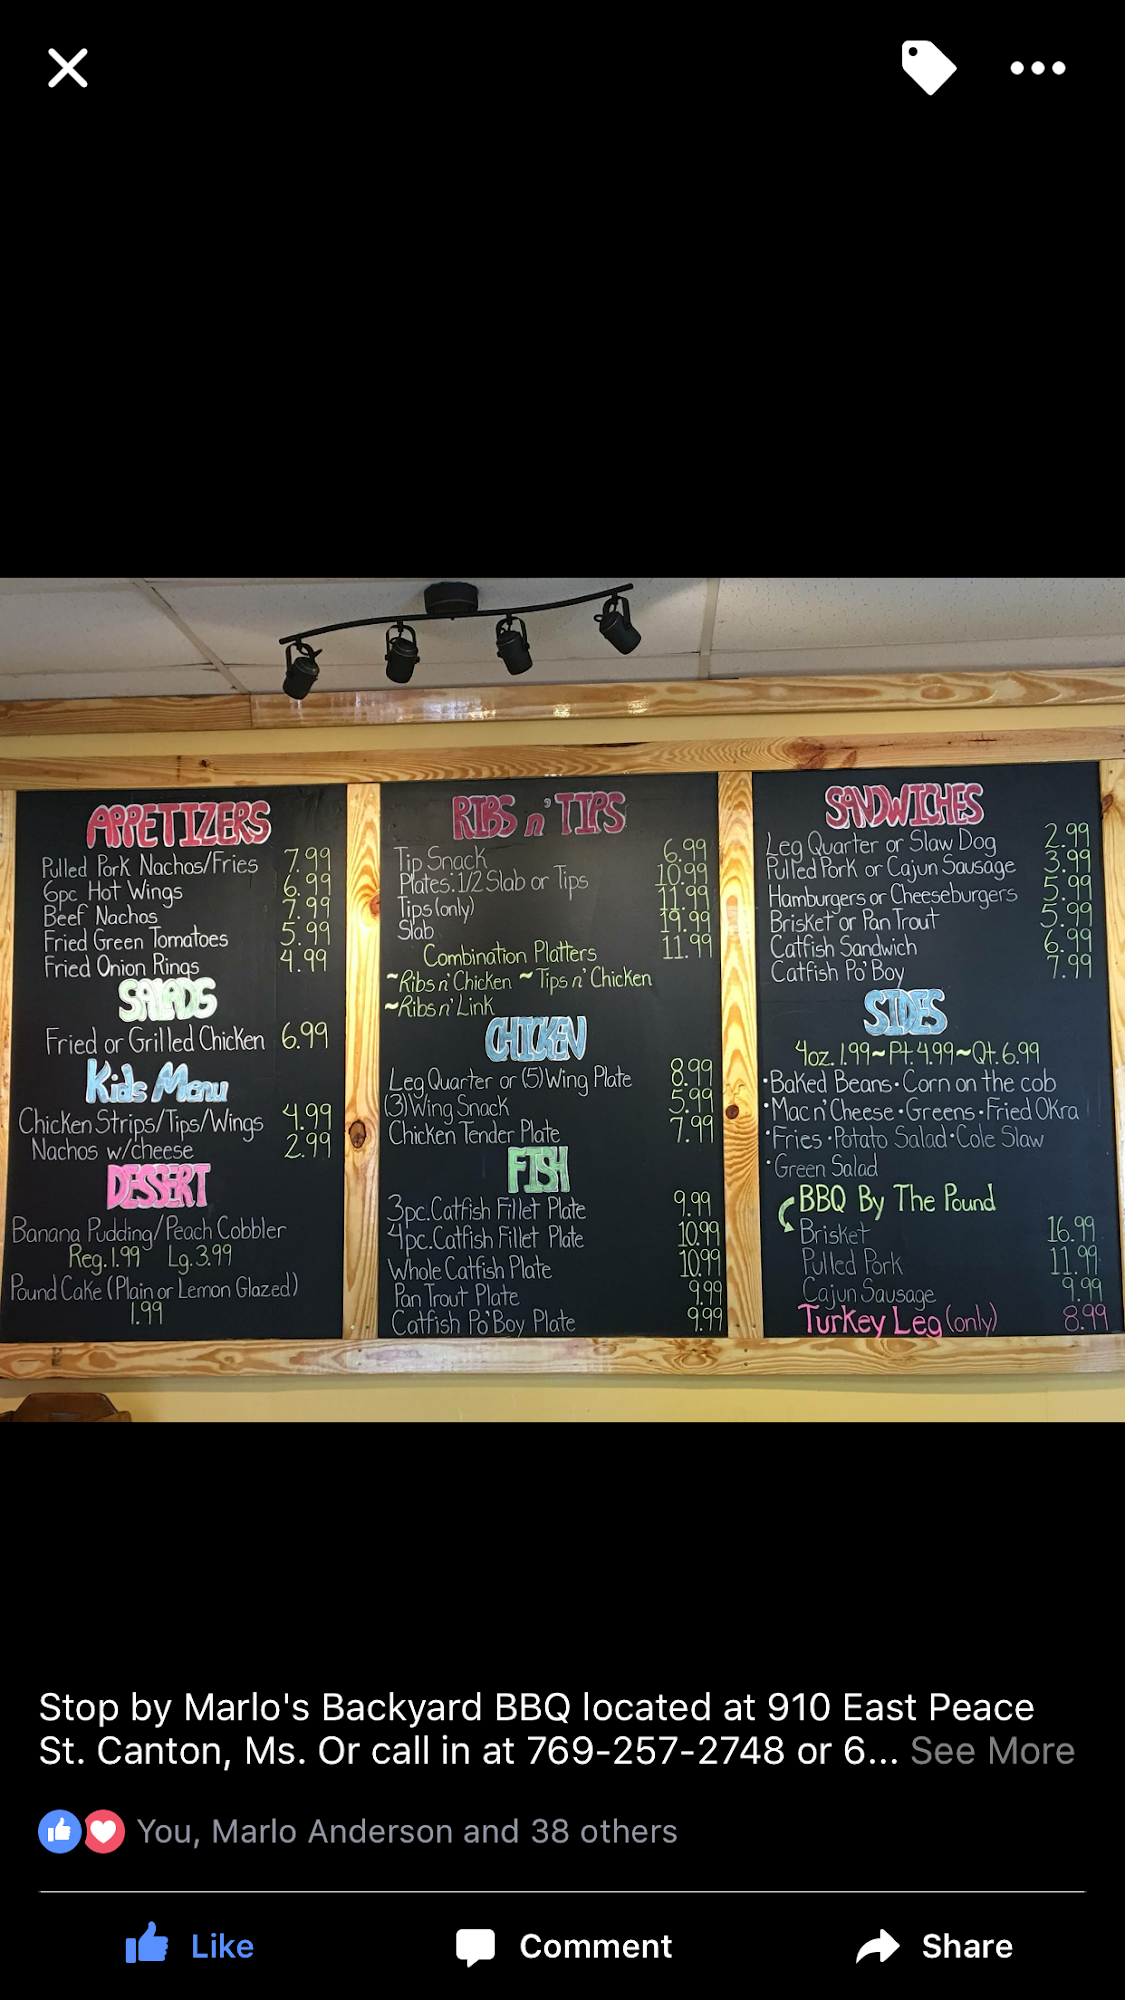 APPETIZERS
Pulled Pork Nachos/Fries 7.99
6pc Hot Wings 6.99
Beef Nachos 7.99
Fried Green Tomatoes 5.99
Fried Onion Rings 4.99
SALADS
Fried or Grilled Chicken 6.99
Kids Menu
Chicken Strips/Tips/Wings 4.99
Nachos w/cheese 2.99
DESSERT
Banana Pudding/Peach Cobbler
Reg. 1.99 Lg. 3.99
Pound Cake (Plain or Lemon Glazed)
1.99
RIBS n' TIPS
Tip Snack 6.99
Plates: 1/2 Slab or Tips 10.99
Tips (only) 11.99
Slab 19.99
Combination Platters 11.99
~Ribs n' Chicken ~Tips n' Chicken
~Ribs n' Link
CHICKEN
Leg Quarter or (5) Wing Plate 8.99
(3) Wing Snack 5.99
Chicken Tender Plate 7.99
FISH
3pc. Catfish Fillet Plate 9.99
4pc. Catfish Fillet Plate 10.99
Whole Catfish Plate 10.99
Pan Trout Plate 9.99
Catfish Po'Boy Plate 9.99
SANDWICHES
Leg Quarter or Slaw Dog 2.99
Pulled Pork or Cajun Sausage 3.99
Hamburgers or Cheeseburgers 5.99
Brisket or Pan Trout 5.99
Catfish Sandwich 6.99
Catfish Po'Boy 7.99
SIDES
4oz. 1.99~Pt. 4.99~Qt. 6.99
•Baked Beans•Corn on the cob
•Mac n' Cheese•Greens•Fried Okra
•Fries•Potato Salad•Cole Slaw
•Green Salad
BBQ By The Pound
Brisket 16.99
Pulled Pork 11.99
Cajun Sausage 9.99
Turkey Leg (only) 8.99
Stop by Marlo's Backyard BBQ located at 910 East Peace
St. Canton, Ms. Or call in at 769-257-2748 or 6... See More
You, Marlo Anderson and 38 others
Like Comment Share